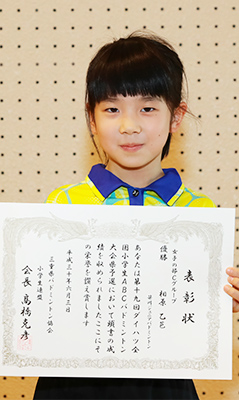 表彰状
女子の部Cグループ
優勝
相原 乙葩
あなたは第十九回ダイハツ全
国小学生ABCバドミントン
大会県予選において頭書の成
績を収められましたここにそ
の栄誉を讃え賞します
平成三十年六月三日
三重県バドミントン協会
小学生連盟
会長 髙橋克彦